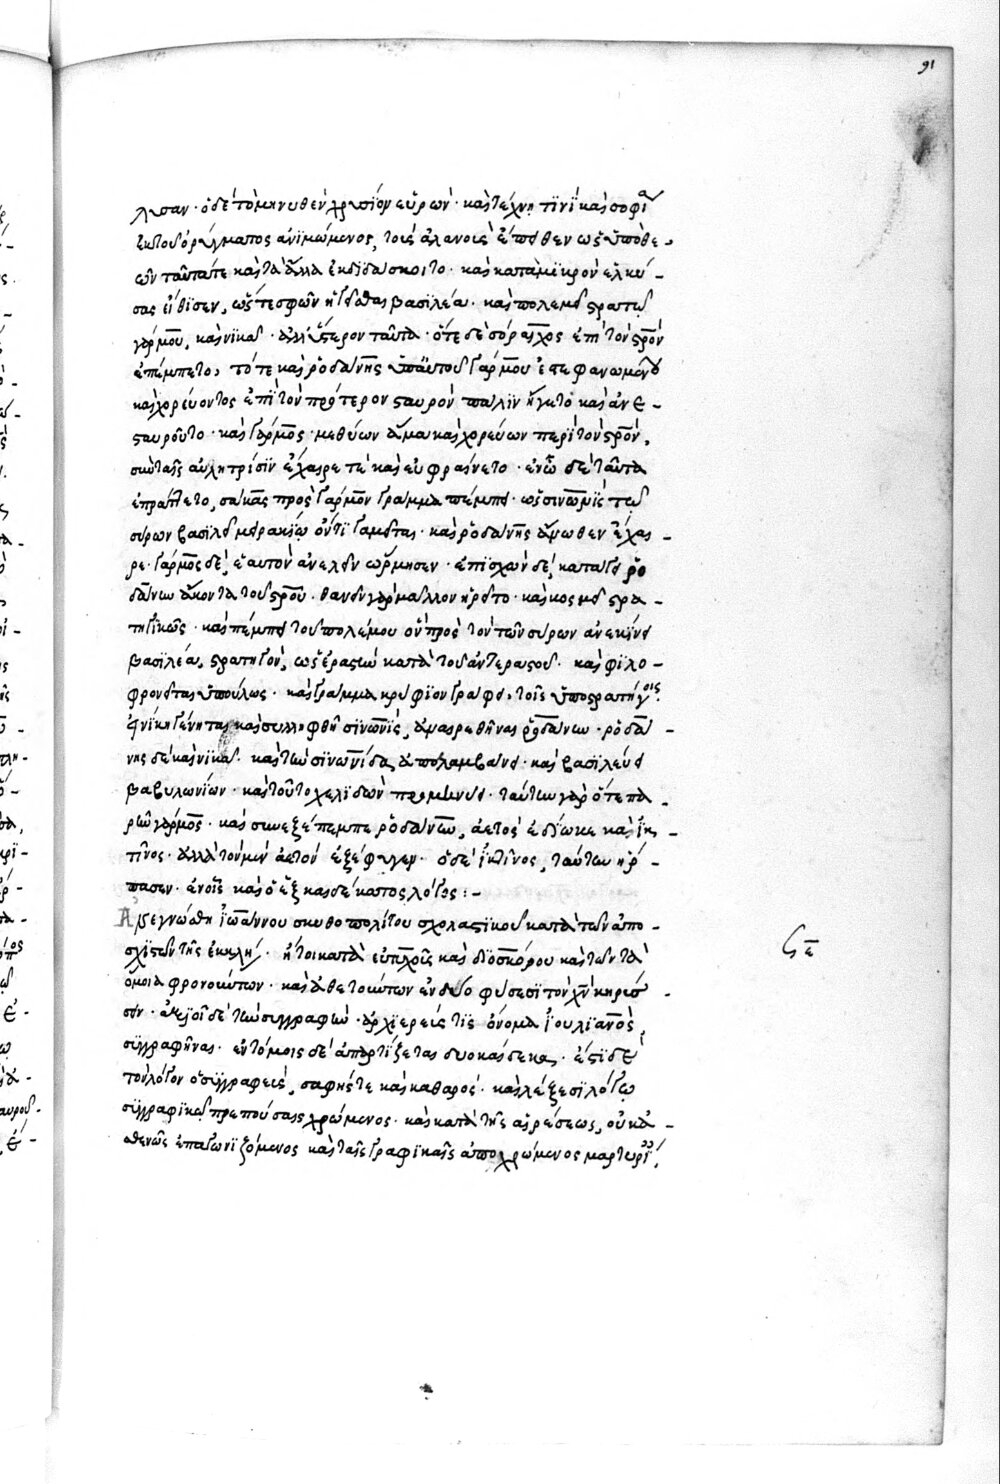 λυσαν· ὁ δὲ τὸ μηνυθὲν χρυσίον εὑρών· καὶ τέχνῃ τινὶ καὶ σοφία
ἐκ τοῦ ὀρύγματος ἀνϊμώμενος, τοὺς ἀλανοὺς ἔπειθεν ὡς ὑπὸ θε -
ῶν ταῦτά τε καὶ τὰ ἄλλα ἐκδϊδάσκοιτο· καὶ καταμϊκρὸν ἑλκύ -
σας εἴθϊσεν, ὥστε σφῶν ἡγεῖσθαι βασιλέα. καὶ πολεμεῖ στρατῷ
γάρμου, καὶ νϊκᾶ· ἀλλ' ὕστερον ταῦτα· ὅτε δὲ σόραιχος ἐπὶ τὸν σρὸν
ἐπέμπετο, τότε καὶ ῥοδάνης ὑπ' αὐτοῦ γάρμου ἐστεφανωμένου
καὶ χορεύοντος ἐπὶ τὸν πρότερον σταυρὸν πάλϊν ἤγετο καὶ ἀνε -
σταυροῦτο· καὶ γάρμος μεθύων ἅμα καὶ χορεύων περὶ τὸν σρὸν,
σὺν ταῖς αὐλητρίσϊν ἔχαιρέ τε καὶ εὐφραίνετο· ἐν ᾧ δὲ ταῦτα
ἐπράττετο, σάκας πρὸς γάρμον γράμμα πέμπει· ὡς σινωνὶς τῷ
σύρων βασιλεῖ μειρακίῳ ὄντϊ γαμεῖται· καὶ ῥοδάνης ἄνωθεν ἔχαι -
ρε· γάρμος δὲ, ἑαυτὸν ἀνελεῖν ὥρμησεν· ἐπϊσχὼν δὲ, κατάγει ῥο
δάνην ἄκοντα τοῦ σροῦ· θανεῖν γὰρ μᾶλλον ἡρεῖτο· καὶ κοσμεῖ στρα -
τηγϊκῶς· καὶ πέμπει τοῦ πολέμου οὗ πρὸς τὸν τῶν σύρων ἀνεκίνει
βασιλέα, στρατηγόν, ὡς ἐραστὴν κατὰ τοῦ ἀντεραστοῦ· καὶ φϊλο -
φρονεῖται ὑπούλως· καὶ γράμμα κρύφϊον γράφει, τοῖς ὑποστρατήγοις
εἰ νίκη γένηται καὶ συλληφθῆ σϊνωνὶς, ἀναιρεθῆναι ῥοδάνην· ῥοδά -
νης δὲ καὶ νϊκᾶ· καὶ τὴν σϊνωνίδα ἀπολαμβάνει· καὶ βασϊλεύει
βαβυλωνίων· καὶ τοῦτο χελϊδὼν προμηνύει· ταύτην γὰρ ὅτε πα -
ρῆν γάρμος· καὶ συνεξέπεμπε ῥοδάνην, ἀετὸς ἐδίωκε καὶ ἰκ -
τῖνος· ἀλλὰ τὸν μὲν ἀετὸν ἐξέφυγεν· ὁ δὲ ἰκτῖνος, ταύτην ἥρ -
πασεν· ἐν οἷς καὶ ὁ ἑξκαιδέκατος λόγος : -
Ἀνεγνώσθη ἰωάννου σκυθοπολίτου σχολαστϊκοῦ κατὰ τῶν ἀπο -
σχϊστῶν τῆς ἐκκλη· ἤτοι κατὰ εὐτυχοῦς καὶ διοσκόρου καὶ τῶν τὰ
ὅμοια φρονούντων· καὶ ἀθετούντων ἐν δύο φύσεσϊ τὸν χν κηρύσ -
σειν· αἰτεῖ δὲ τὴν συγγραφὴν· ἀρχϊερεύς τϊς ὄνομα ἰουλϊανὸς,
συγγραφῆναι· ἐν τόμοις δὲ ἀπαρτίζεται δυοκαίδεκα· ἔστϊ δὲ
τὸν λόγον ὁ συγγραφεὺς, σαφής τε καὶ καθαρὸς· καὶ λέξεσϊ λόγῳ
συγγραφϊκῷ πρεπούσαις χρώμενος· καὶ κατὰ τῆς αἱρέσεως, οὐκ ἀ -
σθενῶς ἐπαγωνϊζόμενος καὶ ταῖς γραφϊκαῖς ἀποχρώμενος μαρτυρί